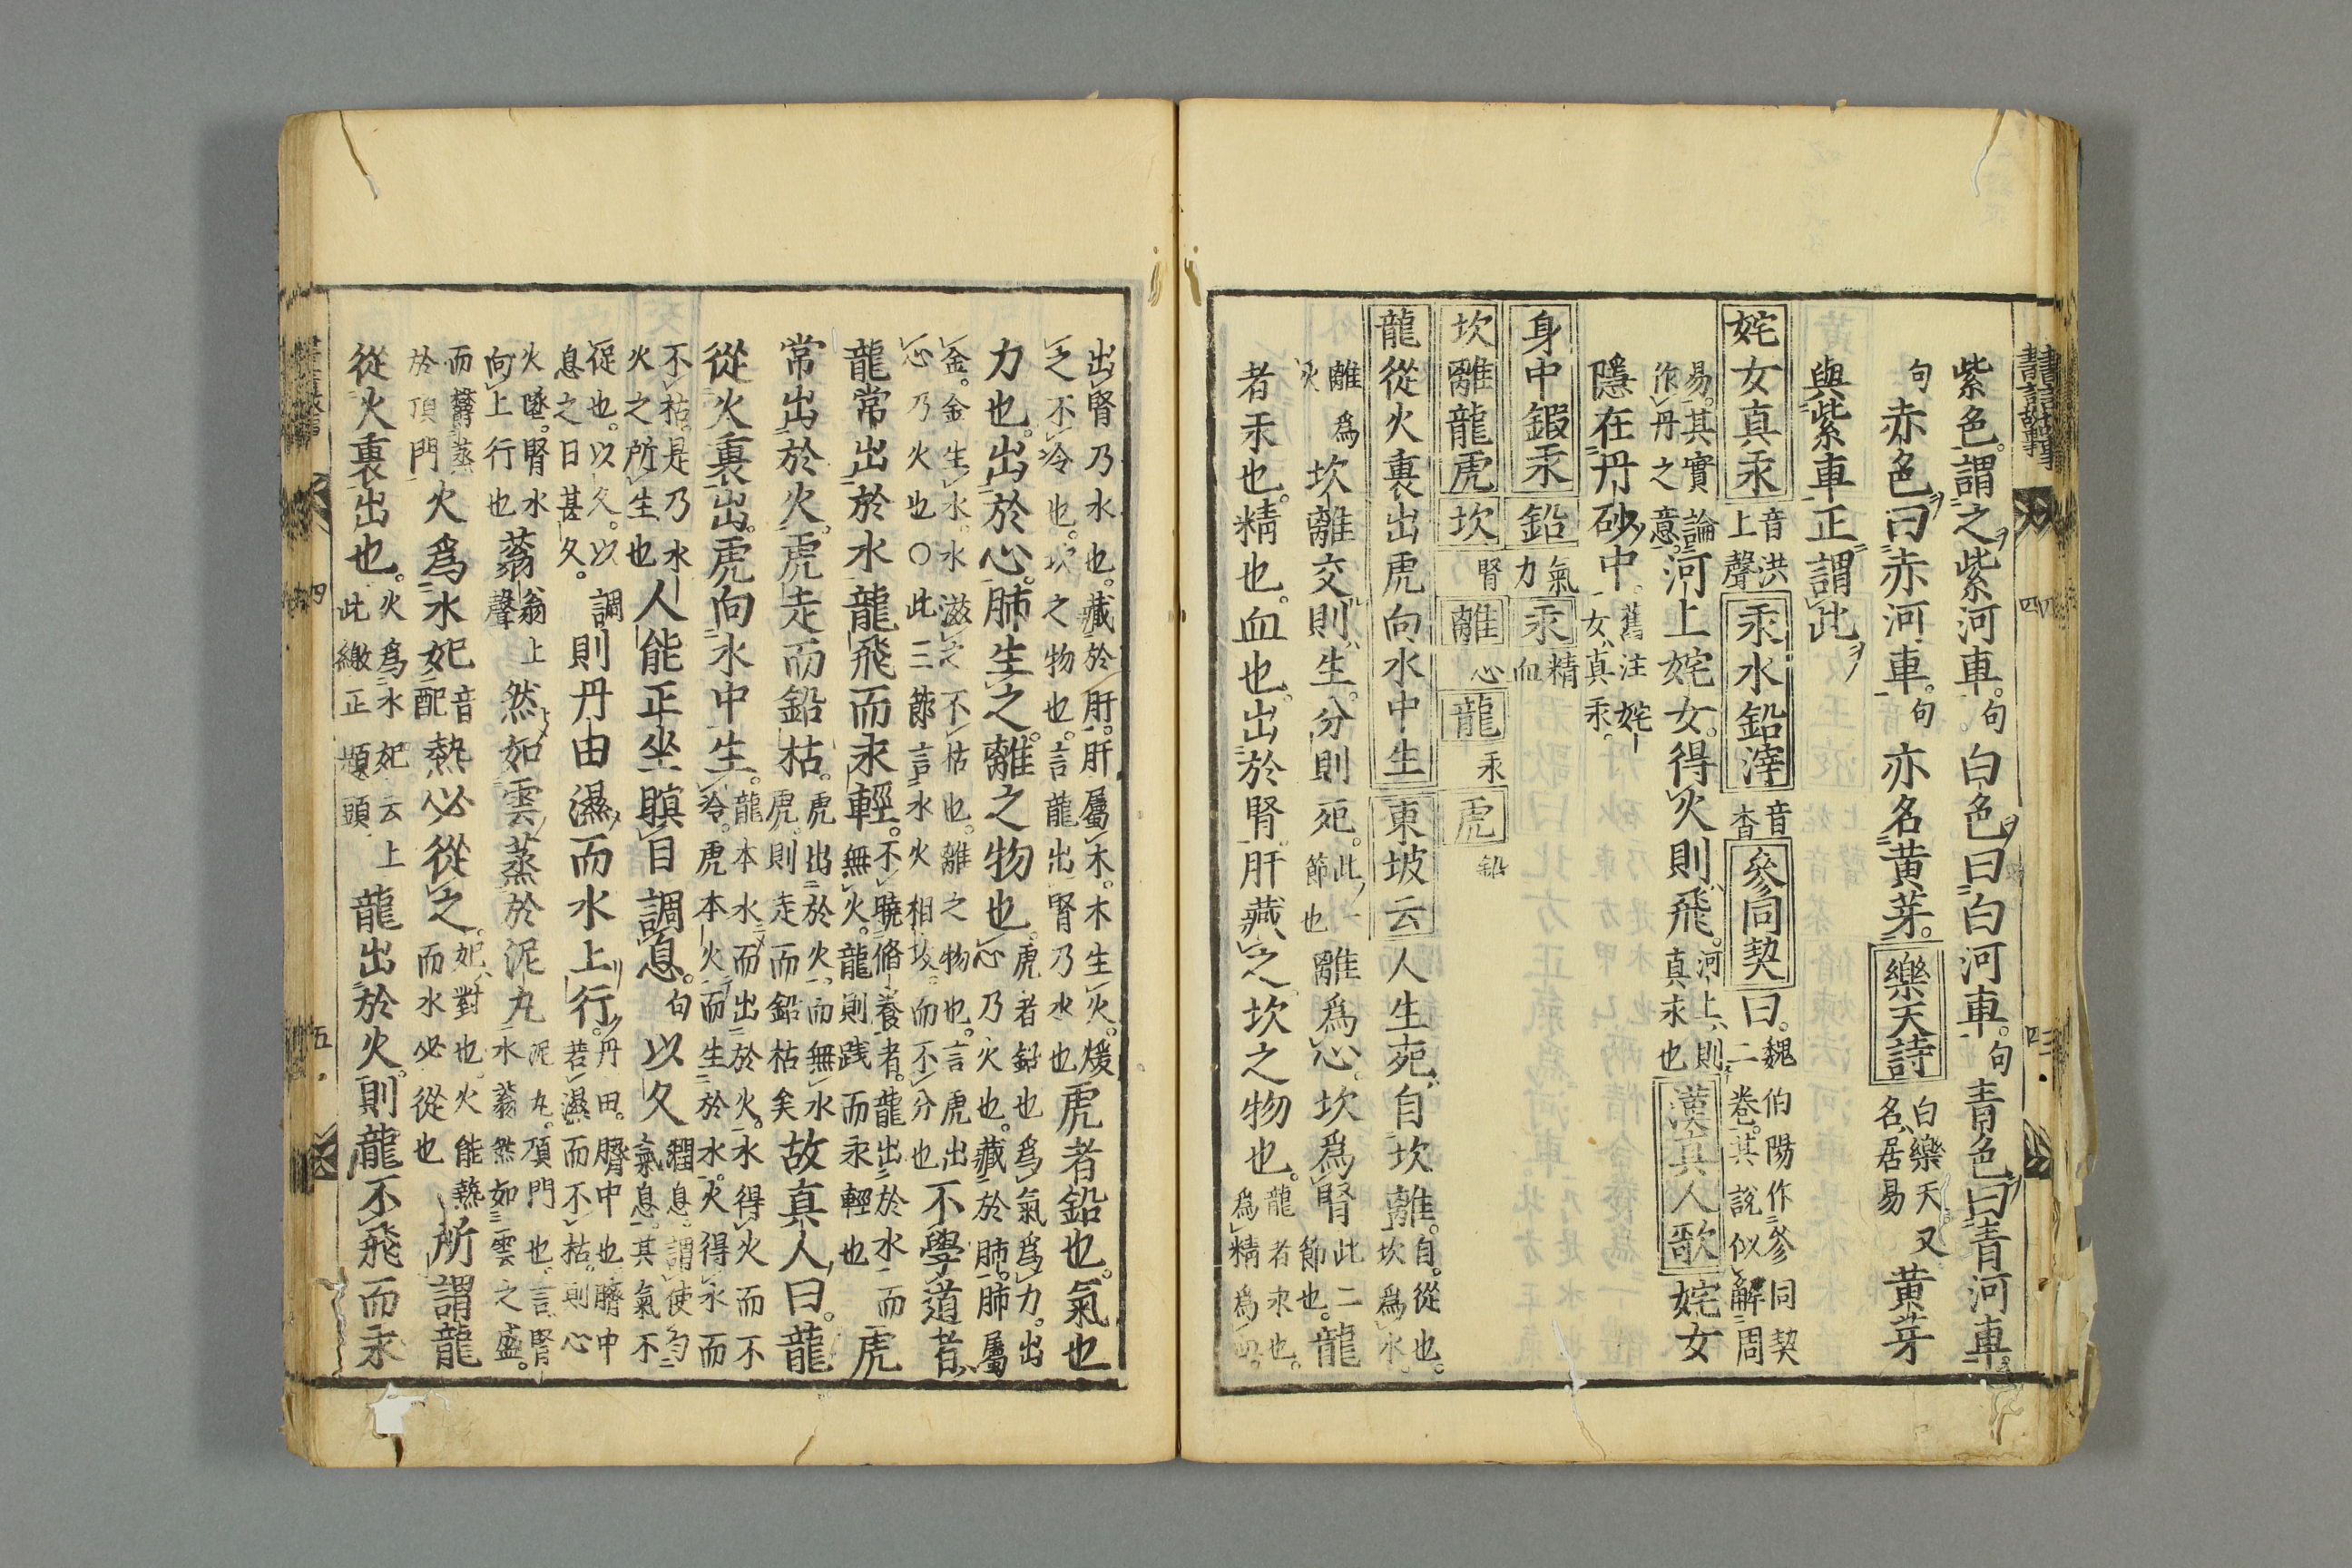 紫色謂之紫河車。句 白色曰白河車。句 青色曰青河車。
句 赤色曰赤河車。句 亦名黄芽。樂天詩 白樂天名居易 又黄芽
與紫車正謂此
姹女真汞 音洪上聲 汞水鉛滓 音査 參同契曰。魏伯陽作參同契二卷。其說似解周
易。其實論作丹之意。河上姹女。得火則飛。河上則真汞也 漢真人歌 姹女
隱在丹砂中。舊注姹女真汞。
身中鍜汞 鉛 氣力 汞 精血
坎離龍虎 坎 腎 離 心 龍 汞 虎 鉛
龍從火裏出虎向水中生 東坡云人生死自坎離。自。從也。坎爲水。
離爲火 坎離交則生。分則死。此一節也 離爲心。坎爲腎 此二節也。龍
者汞也。精也。血也。出於腎肝藏之。坎之物也。龍者汞也。爲精爲血。
出腎乃水也。藏於肝。肝屬木。木生火。煖之不冷也。坎之物也。言龍出腎乃水也 虎者鉛也。氣也
力也。出於心。肺生之。離之物也。虎者鉛也爲氣爲力。出心乃火也。藏於肺。肺屬
金。金生水。水滋之不枯也。離之物也。言虎出心乃火也○此三節言水火相攻。而不分也 不學道者。
龍常出於水龍飛而汞輕。不曉脩養者。龍出於水而無火。龍則踐而汞輕也 虎
常出於火。虎走而鉛枯。虎出於火。而無水虎。則走而鉛枯矣 故真人曰。龍
從火裏出。虎向水中生。龍本水而出於火。水得火而不冷。虎本火而生於水。火得水而
不枯。是乃水火之所生也 人能正坐瞑目調息。句 以久 調息。謂使匀氣息。其氣不
促也。以久。以息之日甚久。 則丹田濕而水上行。丹田。臍中也。臍中若濕而不枯。則心
火降。腎水向上行也 蓊 翁上聲 然如雲蒸於泥丸 泥丸。頂門也。言腎水蓊然如雲之盛。
而蒸於頂門 火爲水妃 音配 熱必從之。妃。對也。火能熱而水必從也 所謂龍
從火裏出也。火爲水妃。云上此繳正題頭 龍出於火。則龍不飛而汞